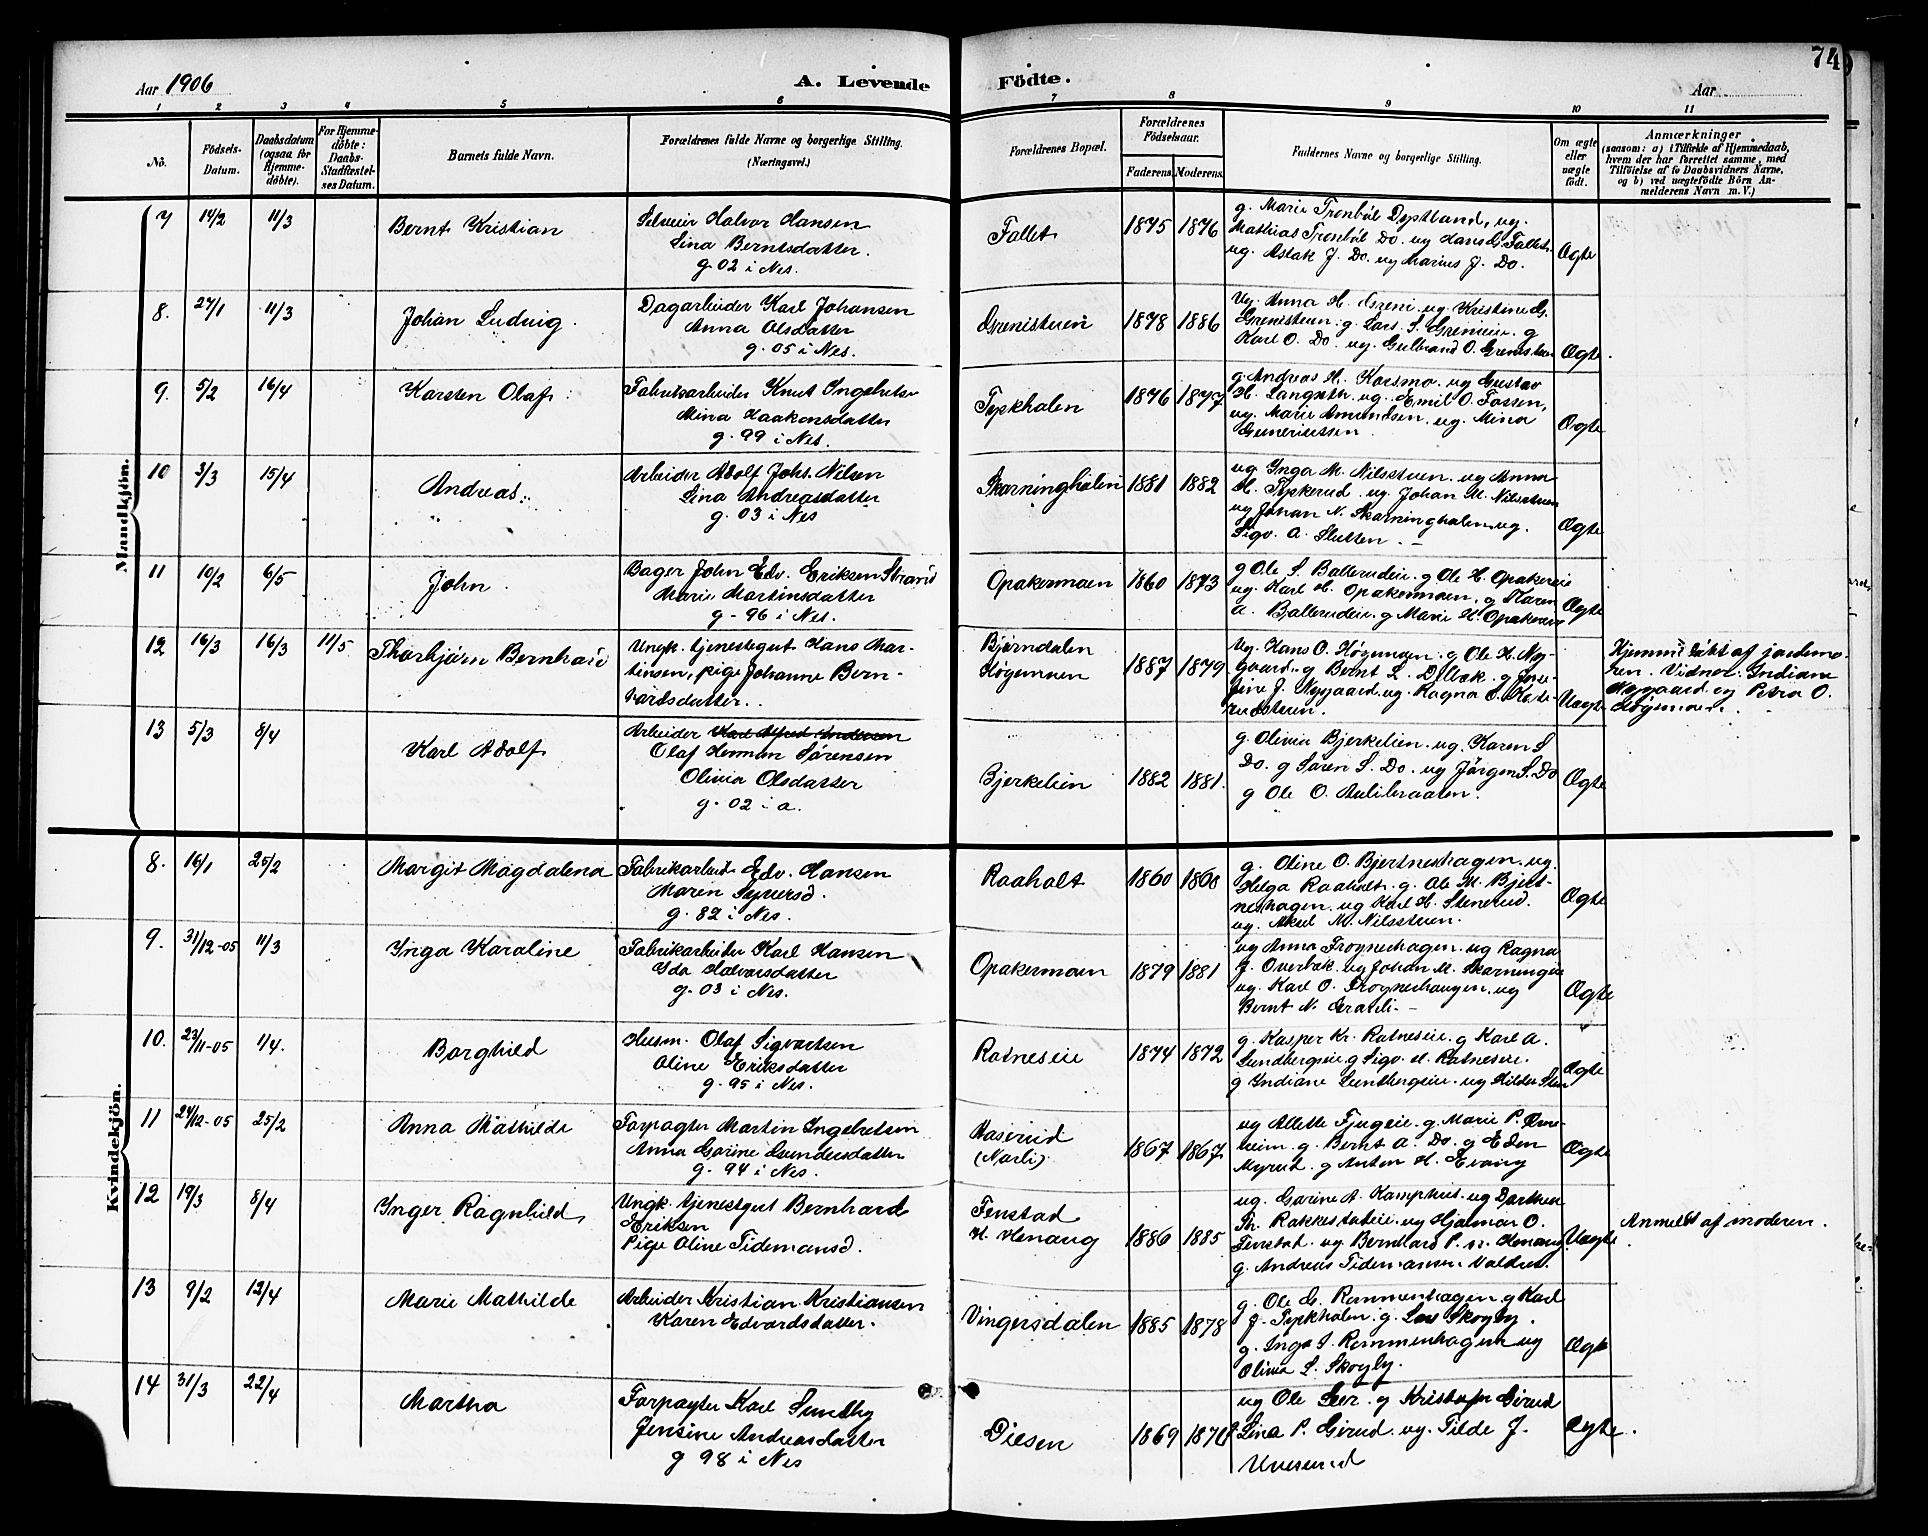 74
Aar 1906
A. Levende Födte.
Aar
1 2 3 4 5 6 7 8 9 10 11
No.
Födsels-Datum.
Daabsdatum (ogsaa for Hjemme-döbte).
For Hjemme-döbte: Daabs-Stadfæstel-ses Datum.
Barnets fulde Navn.
Forældrenes fulde Navne og borgerlige Stilling. (Næringsvei.)
Forældrenes Bopæl.
Forældrenes Födselsaar.
Faderens. Moderens.
Faddernes Navne og borgerlige Stilling.
Om ægte eller uægte födt.
Anmærkninger
(saasom: a) i Tilfælde af Hjemmedaab,
hvem der har forrettet samme, med
Tilföielse af to Daabsvidners Navne,
og b) ved uægtefödte Börn An-
melderens Navn m. V.)
Mandkjön.
7 14/2 11/3
Bernt Kristian
Selveier Halvor Hansen
Lina Berntsdatter.
g. 02 i Nes.
Fallet
1875 1876
g. Marie Tronbøl Dystland, ug.
Mathias Tronbøl Do. ug Hans G. Fallet
ug. Aslak J. Do. ug Marius J. Do.
Ægte
8. 27/1 11/3
Johan Ludvig.
Dagarbeider Karl Johansen
Anna Olsdatter
g. 05 i Nes.
Grenistuen
1878 1886
Ug. Anna H. Greni. ug Kristine G.
Grenistuen. g. Lars S. Grenieie. g
Karl O. Do. ug. Gulbrand O. Grenistuen
Ægte.
9. 5/2 16/4
Karsten Olaf
Fabrikarbeider Knut Ingebretsen
Mina Haakonsdatter
g. 99 i Nes.
Tyskhalen
1876 1877
g. Andreas H. Korsmo. ug Gustav
H. Langseth. ug. Emil O. Fossen,
ug. Marie Amundsen. ug. Mina
Guneriussen.
Ægte
10 3/3 15/4
Andreas
Arbeider Adolf Johs. Nilsen
Lina Andreasdatter
g. 03 i Nes
Skarninghalen
1881 1882
ug Inga M. Nilsstuen. ug Anna
H. Tyskerud. ug. Johan M. Nilsstuen
ug Johan N. Skarninghalen. ug.
Sigv. A. Slutten. –
Ægte
11 10/2 6/5
John.
Bager John Edv. Eriksen Strand
Marie Martinsdatter
g. 96 i Nes.
Opakermoen
1860 1873
g Ole S. Ballerudeie. g Ole H. Opakereie
ug. Karl H. Opakermoen, g Maren
A. Ballerudeie. g Marie H. Opakereie
Ægte
12 16/3 16/3 11/5
Thorbjørn Bernhard
Ungk. tjenestegut Hans Mar-
tinsen, pige Johanne Bern-
hardsdatter.
Bjørndalen
Høgemoen
1887 1879
Ug. Hans O. Høgemoen. g Ole H. Ny-
gaard. g Bernt L. Dølbæk. g Jose-
fine J. Nygaard. ug. Ragna
Uægte
Hjemmedøbt af jordemo-
ren. Vidner: Indiane
Nygaard og Petra O.
Høgemoen.
13 5/3 8/4
Karl Adolf
Arbeider Karl Alfred Andersen
Olaf Herman Sørensen
Olivia Olsdatter
g. 02 i a.
Bjerkelien
1882 1881.
g. Olivia Bjerkelien. ug. Karen S
Do. g Søren S. Do. ug Jørgen S. Do
g Ole O. Aulibraaten.
Ægte
Kvindekjön.
8. 16/1 25/2
Margit Magdalena
Fabrikarbeid. Edv. Hansen
Maren Syversd.
g. 82 i Nes.
Raaholt
1860 1860
g. Oline O. Bjertneshagen. ug.
Helga Raaholt. g. Ole M. Bjert-
neshagen. ug Karl H. Stenerud.
ug. Aksel M. Nilsstuen.
Ægte
9. 31/12-05 11/3
Inga Karaline
Fabrikarbeider Karl Hansen
Ida Halvorsdatter
g. 03 i Nes.
Opakermoen
1879 1881
ug Anna Frognerhagen. ug Ragna
J. Overbæk. ug Johan M. Skarningen
ug. Karl O. Frognerhaugen. ug
Bernt N.
Ægte
10. 23/11-05 1/4.
Borghild
Husm. Olaf Sigvartsen
Oline Eriksdatter
g. 95 i Nes.
Rotneseie
1874 1872
g. Kasper Kr. Rotneseie. g Karl A.
Lundbergeie. g Sigv. M. Rotneseie.
g Indiane Lundbergeie. ug Hilda
Ægte
11 24/12-05 25/2
Anna Mathilde
Forpagter Martin Ingebretsen
Anna Gorine Gundersdatter
g. 94 i Nes.
Haserud
(Narli)
1867 1867
ug Allette Fjugeie. g. Marie P.
heim. g. Bernt A. Do. g Eden
Myrud. g Anton H. Evang
Ægte
12 19/3 8/4
Inger Ragnhild
Ungk. tjenestgut Bernhard
Eriksen
Pige Oline Tidemansd.
Fenstad
N. Henaug
1886 1885
ug. Gorine A. Kamphus. ug Dorthea
Th. Rakkestadeie. ug Hjalmar O.
Fenstad. ug Bernhard P. n. Henaug
g. Andreas Tidemansen Valdres.
Uægte
Anmeldt af moderen.
13 9/2 12/4
Marie Mathilde
Arbeider Kristian Kristiansen
Karen Edvardsdatter.
Vingersdalen
1885 1878
g. Ole G. Rommenhagen. g Karl
J. Tyskhalen. g. Lars Skogby.
g. Inga S. Rommenhagen. ug
Olivia L. Skogby.
Ægte
14 31/3 22/4
Martha
Forpagter Karl Sundby
Jensine Andreasdatter
g 98 i Nes
Diesen
1869 1870
ug Ole Leer. g Kristofer Girud
Lina P. Girud. ug. Tilde J.
Ægte.